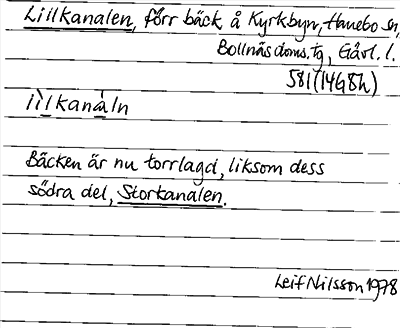 Lillkanalen, förr bäck å Kyrkbyn, Hanebo sn,
Bollnäs doms.tg, Gävl. l.
581 (14G8h)
lìlkanàln
Bäcken är nu torrlagd, liksom dess
södra del, Storkanalen.
Leif Nilsson 1978